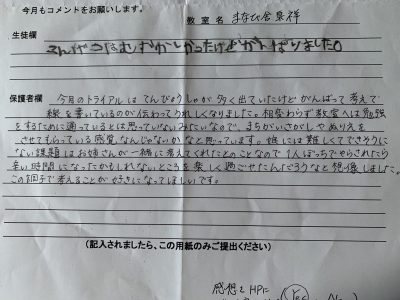 今月もコメントをお願いします。
教室名 まなび舎晃祥
生徒欄
てんびょうはむむかしかったけどがんばりました。
保護者欄
今月のトライアルは てんびょうしゃが多く出ていたけど がんばって 考えて
線を書いているのが伝わってうれしくなりました。相変わらず教室へは勉強
をするために通っているとは思っていないみたいなので、まちがいさがしやぬりえを
させてもらっている感覚なんじゃないかなと思っています。娘には難しくてできそうに
ない課題はお姉さんが一緒に考えてくれたとのことなので1人ぼっちでやらされたら
辛い時間になったかもしれないところを楽しく過ごせたんだろうなと想像しました。
この調子で考えることが好きになってほしいです。
(記入されましたら、この用紙のみご提出ください)
感想をHPに
Yes